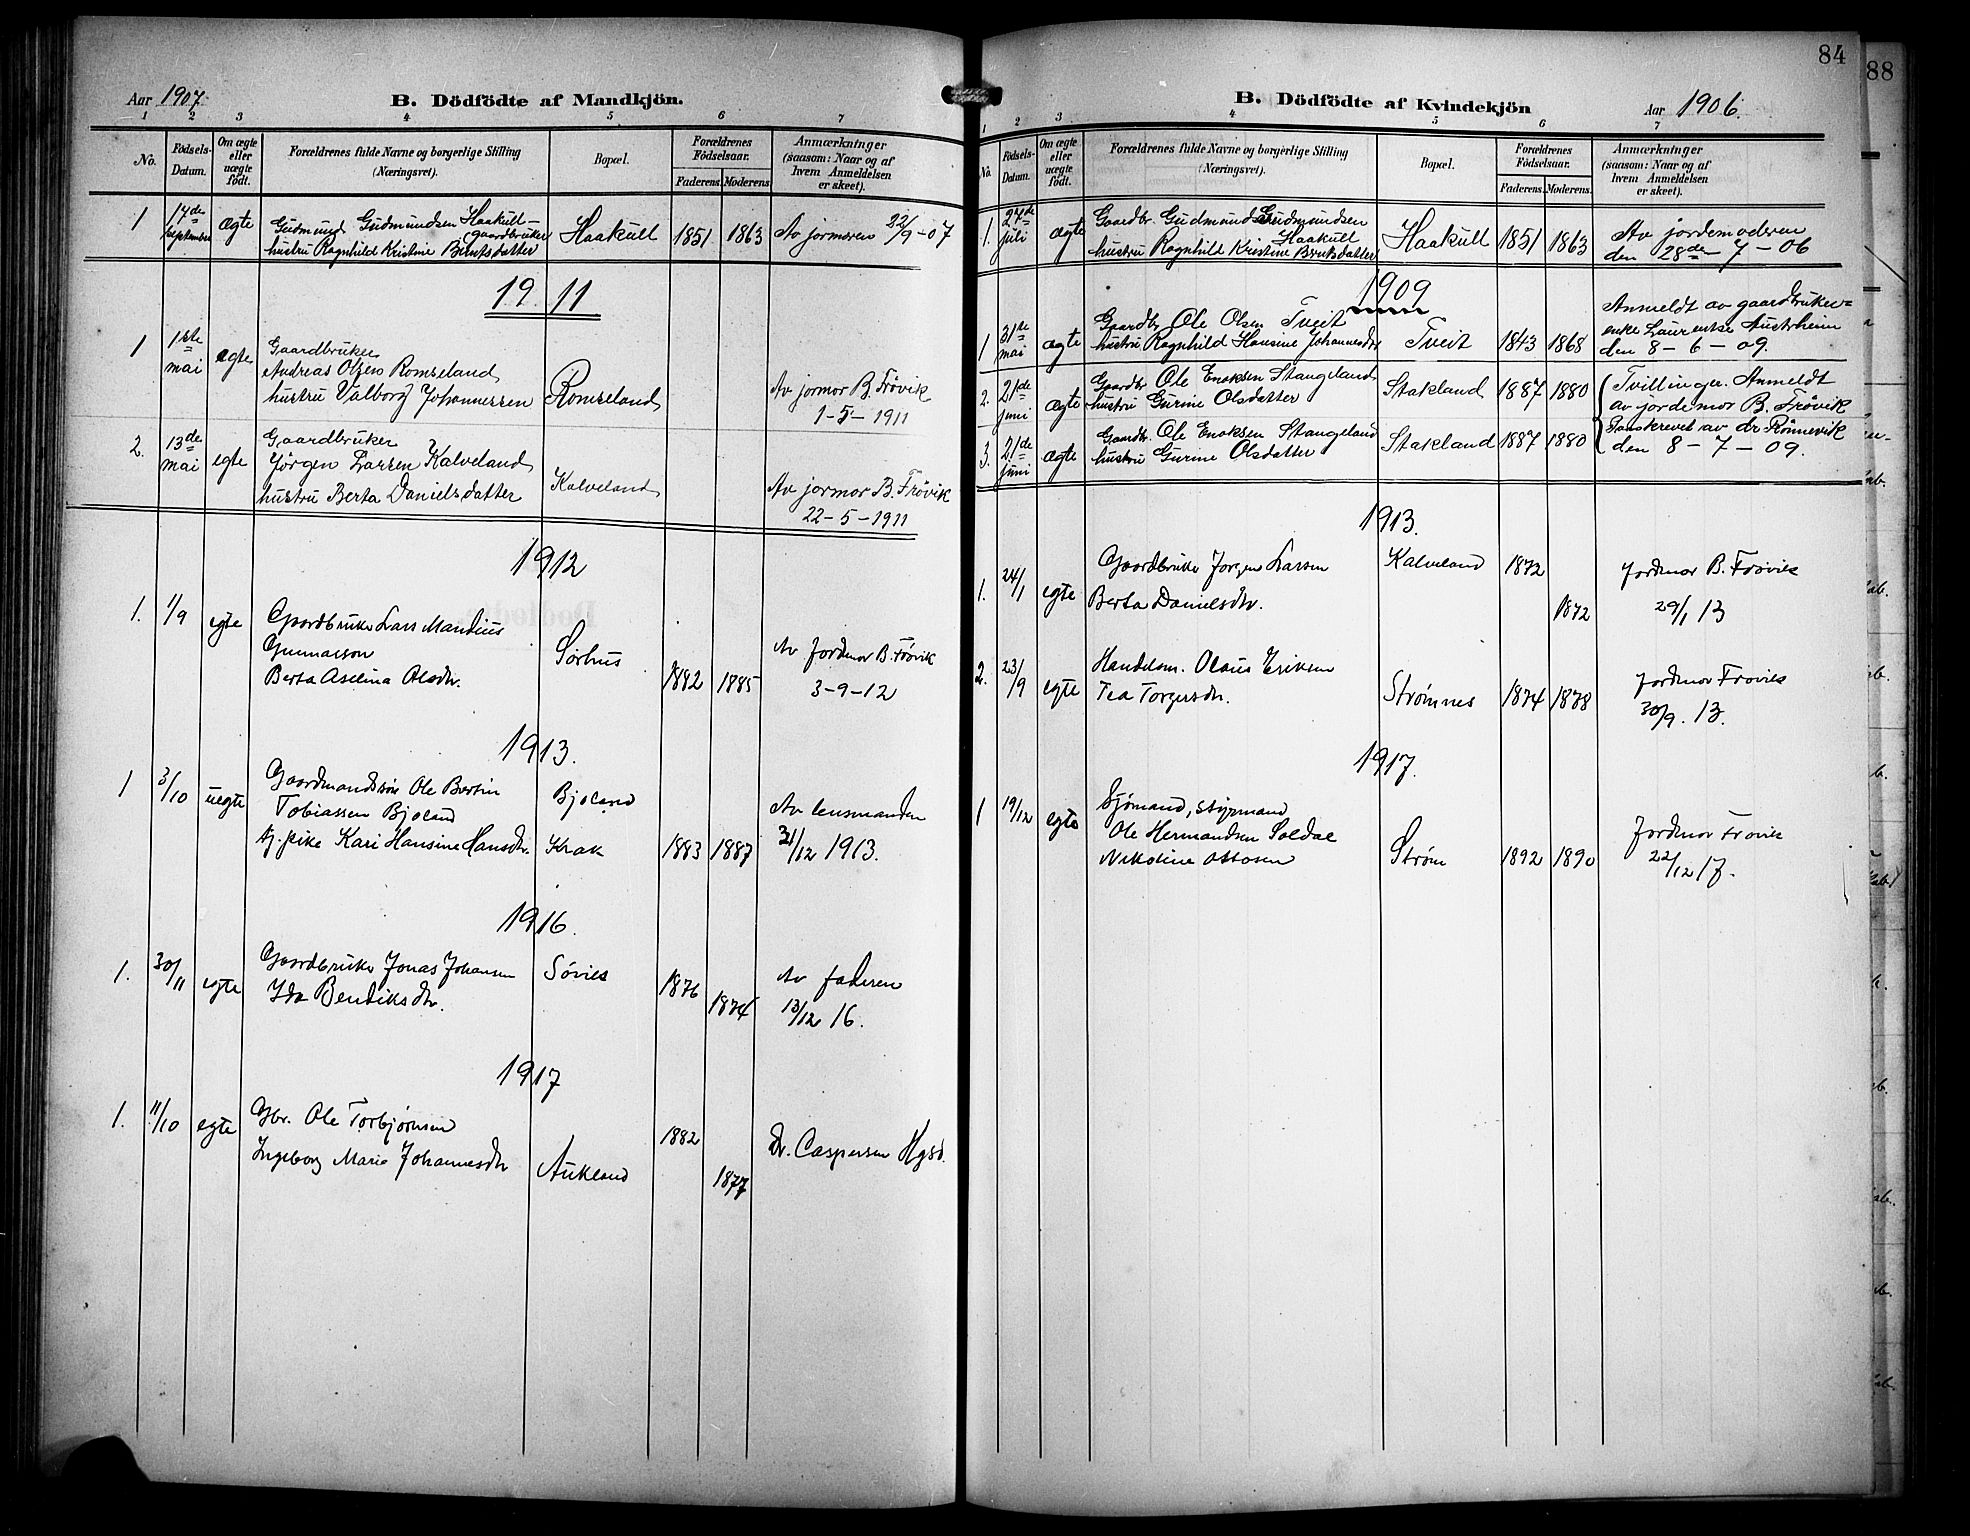 Aar 1907. B. Dödfödte af Mandkjön.
1 2 3 4 5 6 7
No. Födsels-Datum. Om ægte eller uægte födt. Forældrenes fulde Navne og borgerlige Stilling (Næringsvei). Bopæl. Forældrenes Födselsaar. Faderens. Moderens. Anmærkninger (saasom: Naar og af hvem Anmeldelsen er skeet).
1 17de september ægte Gudmund Gudmundsen Haakull - gaardbruker
hustru Ragnhild Kristine Bentsdatter Haakull 1851 1863 Av jormoren 22/9 - 07
1911
1 1ste mai ægte Gaardbruker
Andreas Olsen Romseland
hustru Valborg Johannessen Romseland Av jormor B. Frøvik
1-5-1911
2. 13de mai egte Gaardbruker
Jørgen Larsen Kalveland
hustru Berta Danielsdatter Kalveland Av jormor B. Frøvik
22-5-1911
1912
1. 1/9 egte Gaardbruker Lars Mandius
Gunnarson
Berta Aselina Olsdtr. Sørhus 1882 1885 Av Jordmor B. Frøvik
3-9-12
1913.
1 3/10 uegte Gaardmandssøn Ole Bertin
Tobiassen Bjoland Bjoland
Pj. pike Kari Hansine Hansdtr. Krak 1883 1887 Av lensmanden
31/12 1913.
1916.
1. 30/11 egte Gaardbruker Jonas Johansen
Ida Bendiksdtr. Søvik 1876 1874 Av faderen
13/12 16.
1917
1. 11/10 egte Gbr. Ole Torbjørnsen
Ingeborg Marie Johannesdtr Aukland 1882 1877 Dr. Caspersen Hgsd.
84
88
B. Dödfödte af Kvindekjön Aar 1906.
1 2 3 4 5 6 7
No. Födsels-Datum. Om ægte eller uægte födt. Forældrenes fulde Navne og borgerlige Stilling (Næringsvei). Bopæl. Forældrenes Födselsaar. Faderens. Moderens. Anmærkninger (saasom: Naar og af hvem Anmeldelsen er skeet).
1. 27de juli ægte Gaardbr. Gudmund Gudmundsen
Haakull
hustru Ragnhild Kristine Bentsdatter Haakull 1851 1863 Av jordemoderen
den 28de - 7 - 06
1909
1 31te mai ægte Gaardbr. Ole Olsen Tveit
hustru Ragnhild Hansine Johannesdtr Tveit 1843 1868 Anmeldt av gaardbruker=
enke Laurentse Austrheim
den 8 - 6 - 09.
2. 21de juni ægte Gaardbr. Ole Enoksen Stangeland
hustru Gurine Olsdatter Stakland 1887 1880 Tvillinger. Anmeldt
av jordemor B. Frøvik
3. 21de juni ægte Gaardbr. Ole Enoksen Stangeland
hustru Gurine Olsdatter Stakland 1887 1880 av dr. Rönnevik
den 8 - 7 - 09.
1913.
1. 24/1 egte Gaardbruker Jørgen Larsen
Berta Danielsdtr. Kalveland 1872 1872 Jordmor B. Frøvik
29/1 13
2. 23/9 egte Handelsm. Olaus Eriksen
Tea Torgersdtr. Strømnes 1874 1878 Jordmor Frøvik
30/9. 13.
1917.
1 19/12 egte Sjømand, styrmand
Ole Hermandsen Soldal
Nikoline Ottosen Strøm 1892 1890 Jordmor Frøvik
22/12 17.